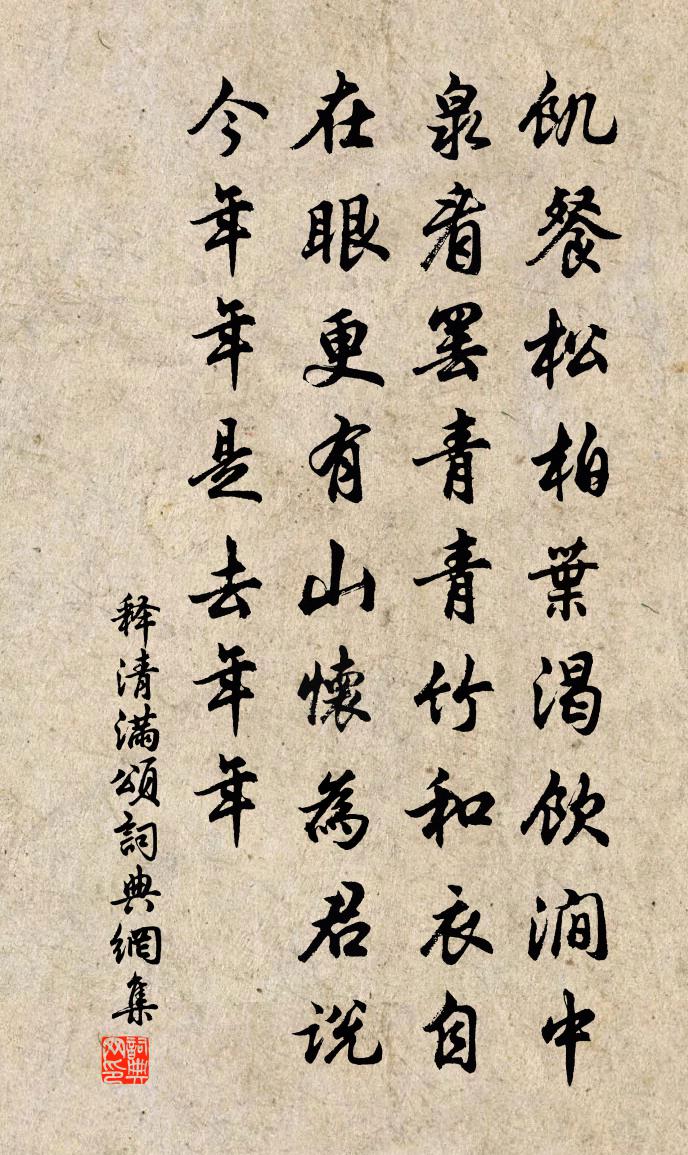 飢餐松柏葉渴飲澗中
泉看罷青青竹和衣自
在眼更有山懷為君說
今年年是去年年
释清滿頌詞典網集
詞典网印